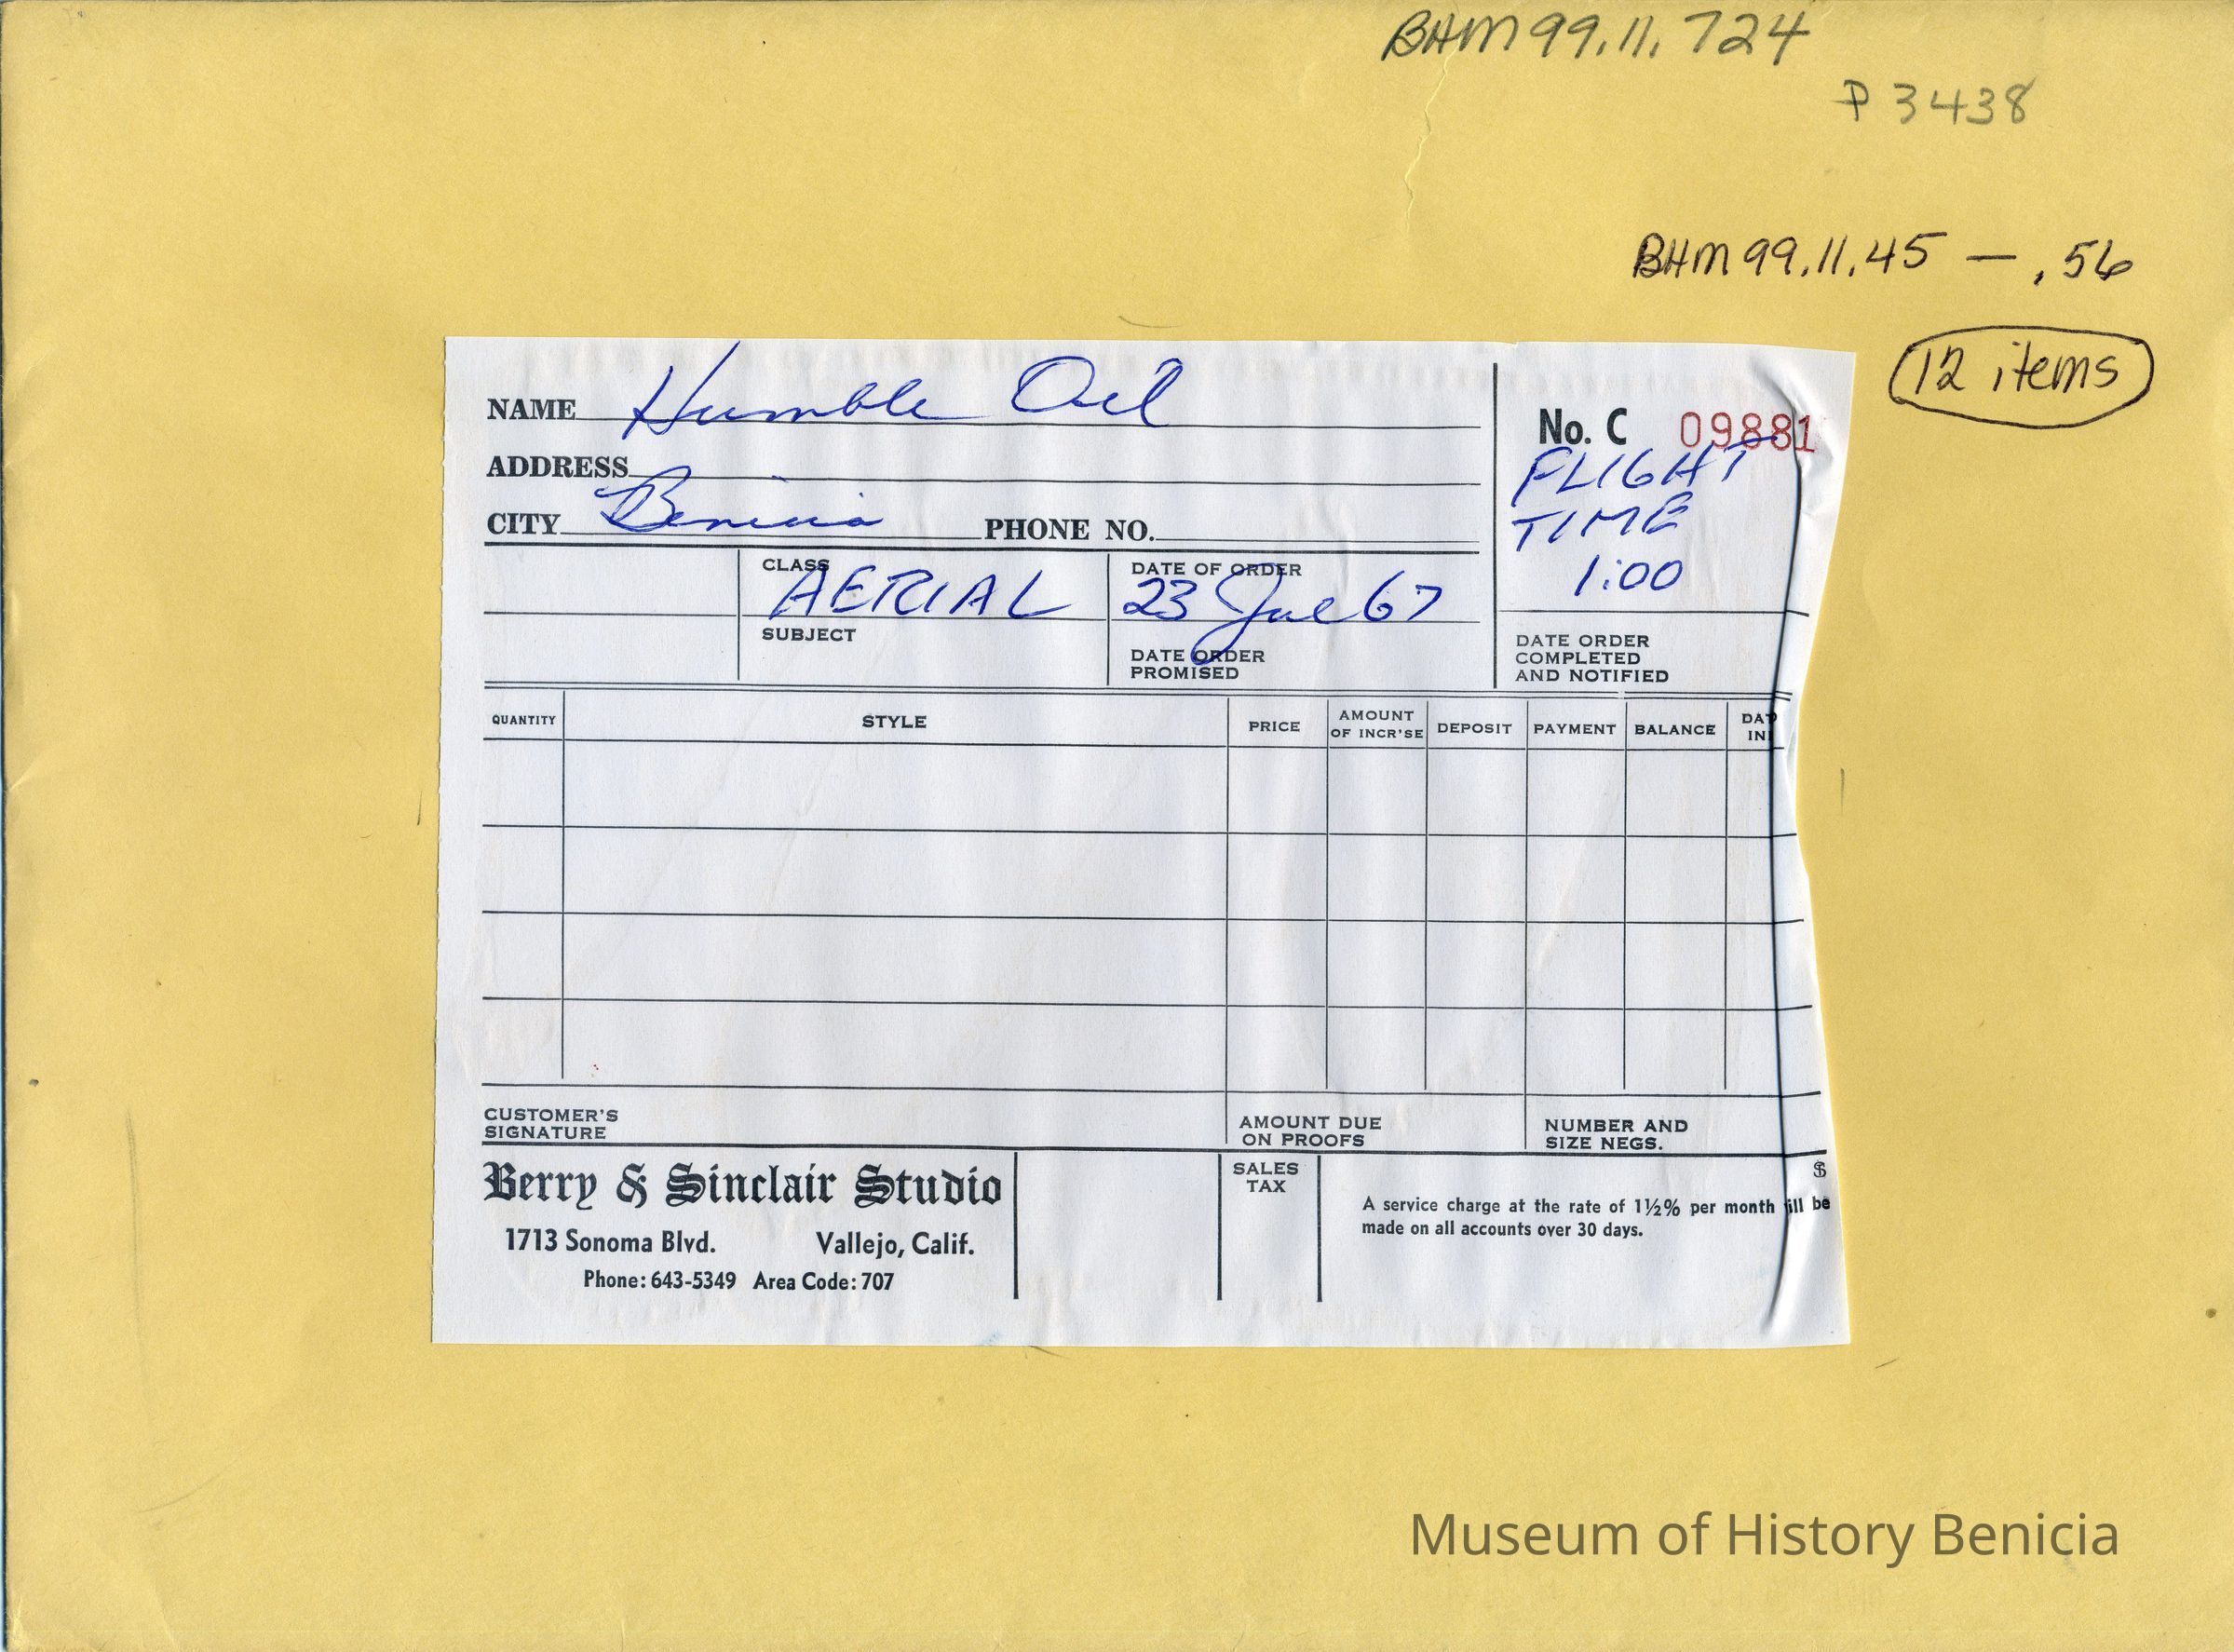 BHM 99.11.724
P 3438
BHM 99.11.45 — .56
12 items
NAME Humble Oil
No. C 09881
ADDRESS
FLIGHT
TIME
1:00
CITY Benicia PHONE NO.
CLASS AERIAL
DATE OF ORDER 23 Jul 67
SUBJECT
DATE ORDER
PROMISED
DATE ORDER
COMPLETED
AND NOTIFIED
QUANTITY STYLE PRICE AMOUNT OF INCR'SE DEPOSIT PAYMENT BALANCE
CUSTOMER'S
SIGNATURE
AMOUNT DUE
ON PROOFS
NUMBER AND
SIZE NEGS.
Berry & Sinclair Studio
1713 Sonoma Blvd. Vallejo, Calif.
Phone: 643-5349 Area Code: 707
SALES
TAX
$
A service charge at the rate of 1½% per month ill be
made on all accounts over 30 days.
Museum of History Benicia